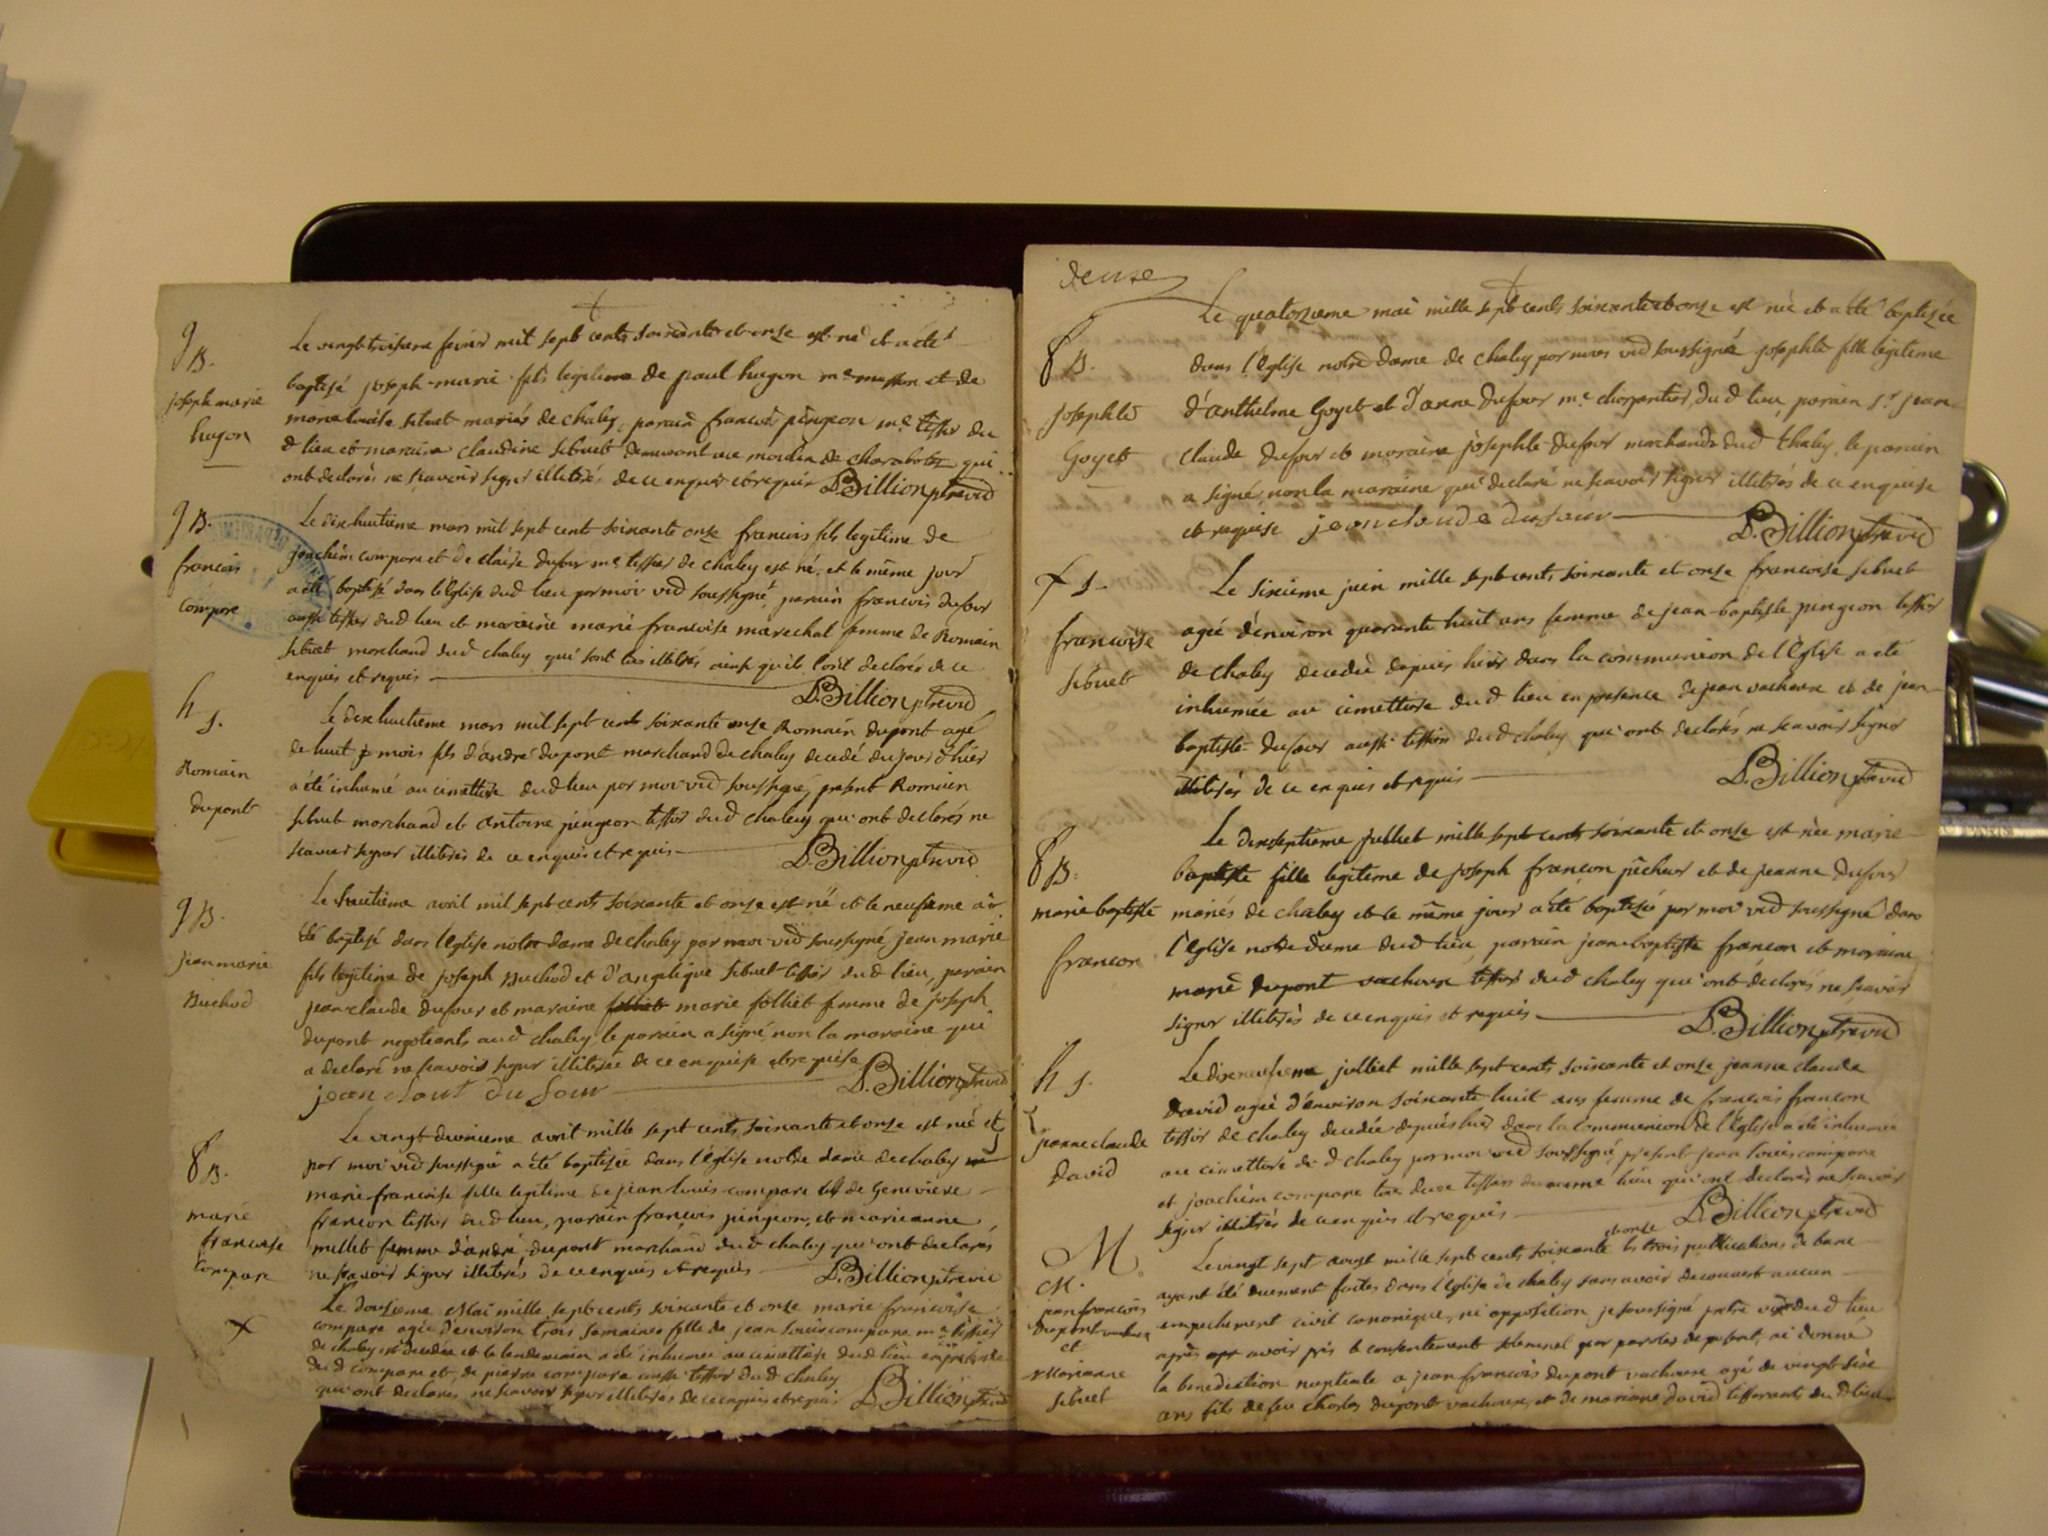 g B.
joseph marie
hugon
Le vingt troisieme fevrier mil sept cents soixante et onze est né et a été
baptisé joseph-marie fils legitime de paul hugon me masson et de
marie louise sibuet mariés de chaley, parain francois pingeon me tissier du
d lieu et maraine claudine sibuet demeurant au moulin de charabotte qui
ont declarés ne scavoir signer illiterés de ce enquis et requis D. Billion ptre vic
g B.
francois
compare
Le dixhuitieme mars mil sept cent soixante onze francois fils legitime de
joachim compare et de claire dufour me tissier de chaley est né, et le même jour
a été baptisé dans l'Eglise dud lieu par moi vic soussigné, parain francois dufour
aussi tissier dud lieu et maraine marie francoise marechal femme de Romain
sibuet marchand dud chaley qui sont tres illiterés ainsi qu'ils l'ont declarés de ce
enquis et requis D. Billion ptre vic
h S.
Romain
dupont
Le dixhuitieme mars mil sept cent soixante onze Romain dupont agé
de huit mois fils d'andré dupont marchand de chaley decedé du jour d'hier
a été inhumé au cimettire dud lieu par moi vic soussigné, present Romain
sibuet marchand et antoine pingeon tissier dud chaley qui ont declarés ne
scavoir signer illiterés de ce enquis et requis D. Billion ptre vic
g B.
jean marie
Buchod
Le huitieme avril mil sept cents soixante et onze est né et le neufieme a
été baptisé dans l'Eglise notre dame de chaley par moi vic soussigné jean marie
fils legitime de joseph Buchod et d'angelique sibuet tissier dud lieu, parain
jean claude dufour et maraine folliet marie folliet femme de joseph
dupont negotiants aud chaley le parain a signé, non la maraine qui
a declaré ne scavoir signer illiterée de ce enquise et requise
jean claud du four D. Billion ptre vic
f B.
marie
francoise
compare
Le vingt deuxieme avril mille sept cents soixante et onze est née et
par moi vic soussigné a été baptisée dans l'église notre dame de chaley
marie francoise fille legitime de jean louis compare et de Genevieve
francon tissier dud lieu, parain francois pingeon, et marieanne
millet femme d'andré dupont marchand dud chaley qui ont declarés
ne scavoir signer illiterés de ce enquis et requis D. Billion ptre vic
Le douzieme Mai mille sept cents soixante et onze marie francoise
compare agée d'environ trois semaines fille de jean louis compare me tissier
de chaley est decedée et le lendemain a été inhumée au cimettire dud lieu en presence
dud compare et de pierre compare aussi tissier dud chaley
qui ont declarés ne scavoir signer illiterés de ce enquis et requis D. Billion ptre vic
deuxe
f B.
josephte
Goyet
Le quatorzieme mai mille sept cents soixante et onze est née et a été baptisée
dans l'Eglise notre dame de chaley par nous vic soussigné josephte fille legitime
d'anthelme Goyet et d'anne dufour me charpentier dud lieu, parain sr jean
claude dufour et maraine josephte dufour marchands dud chaley, le parain
a signé, non la maraine qui declaré ne scavoir signer illiterés de ce enquise
et requise jean claude dufour D. Billion ptre vic
f S.
francoise
sibuet
Le sixieme juin mille sept cents soixante et onze francoise sibuet
agée d'environ quarante huit ans femme de jean-baptiste pingeon tissier
de chaley decedée depuis hier dans la communion de l'Eglise a été
inhumée au cimettire dud lieu en presence de jean vacheux et de jean
baptiste dufour aussi tissiers dud chaley qui ont declarés ne scavoir signer
illiterés de ce enquis et requis D. Billion ptre vic
f B.
marie baptiste
francon
Le dixseptieme julliet mille sept cents soixante et onze est née marie
baptiste fille legitime de joseph francon pêcheur et de jeanne dufour
mariés de chaley et le même jour a été baptisée par moi vic soussigné dans
l'Eglise notre dame dud lieu, parain jean baptiste francon et maraine
marie dupont vacheux tissier dud chaley qui ont declarés ne scavoir
signer illiterés de ce enquis et requis D. Billion ptre vic
h S.
jeanne claude
david
Le dixneufieme julliet mille sept cents soixante et onze jeanne claude
david agée d'environ soixante huit ans femme de francois francon
tissier de chaley decedée depuis hier dans la communion de l'Eglise a été inhumée
au cimettire dud chaley par moi vic soussigné, present jean louis compare
et joachim compare tous deux tissiers du meme lieu qui ont declarés ne scavoir
signer illiterés de ce enquis et requis D. Billion ptre vic
M.
M.
jean francois
dupont vacheux
et
Marianne
sibuet
Le vingt sept aoust mille sept cents soixante et onze les trois publications de bans
ayant été duement faites dans l'église de chaley sans avoir decouvert aucun
empechement civil canonique, ni opposition je soussigné pretre vic dud lieu
après avoir pris le consentement solemnel par paroles de present, ai donné
la benediction nuptiale a jean francois dupont vacheux agé de vingt six
ans fils de feu charles dupont vacheux et de mariane david tisserants dud lieu